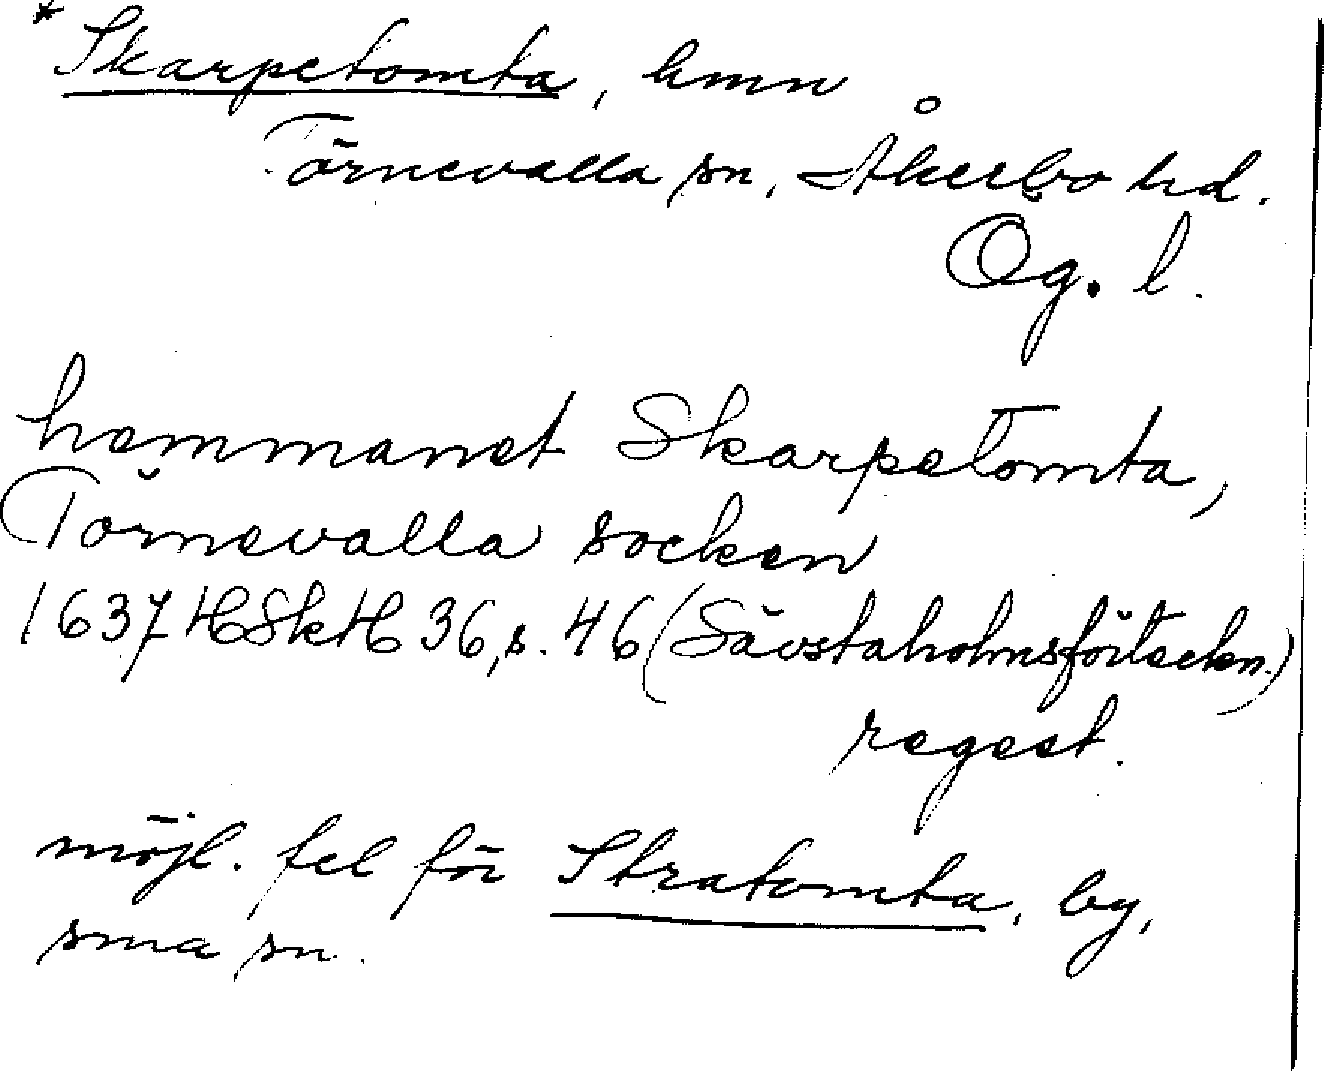 * Skarpetomta, hmn
Törnevalla sn, Åkerbo hd.
Ög. l.
hemmanet Skarpetomta,
Törnevalla socken
1637 HSkH 36, s. 46 (Sävstaholmsförteckn.)
regest.
möjl. fel för Stratomta, by,
sma sn.